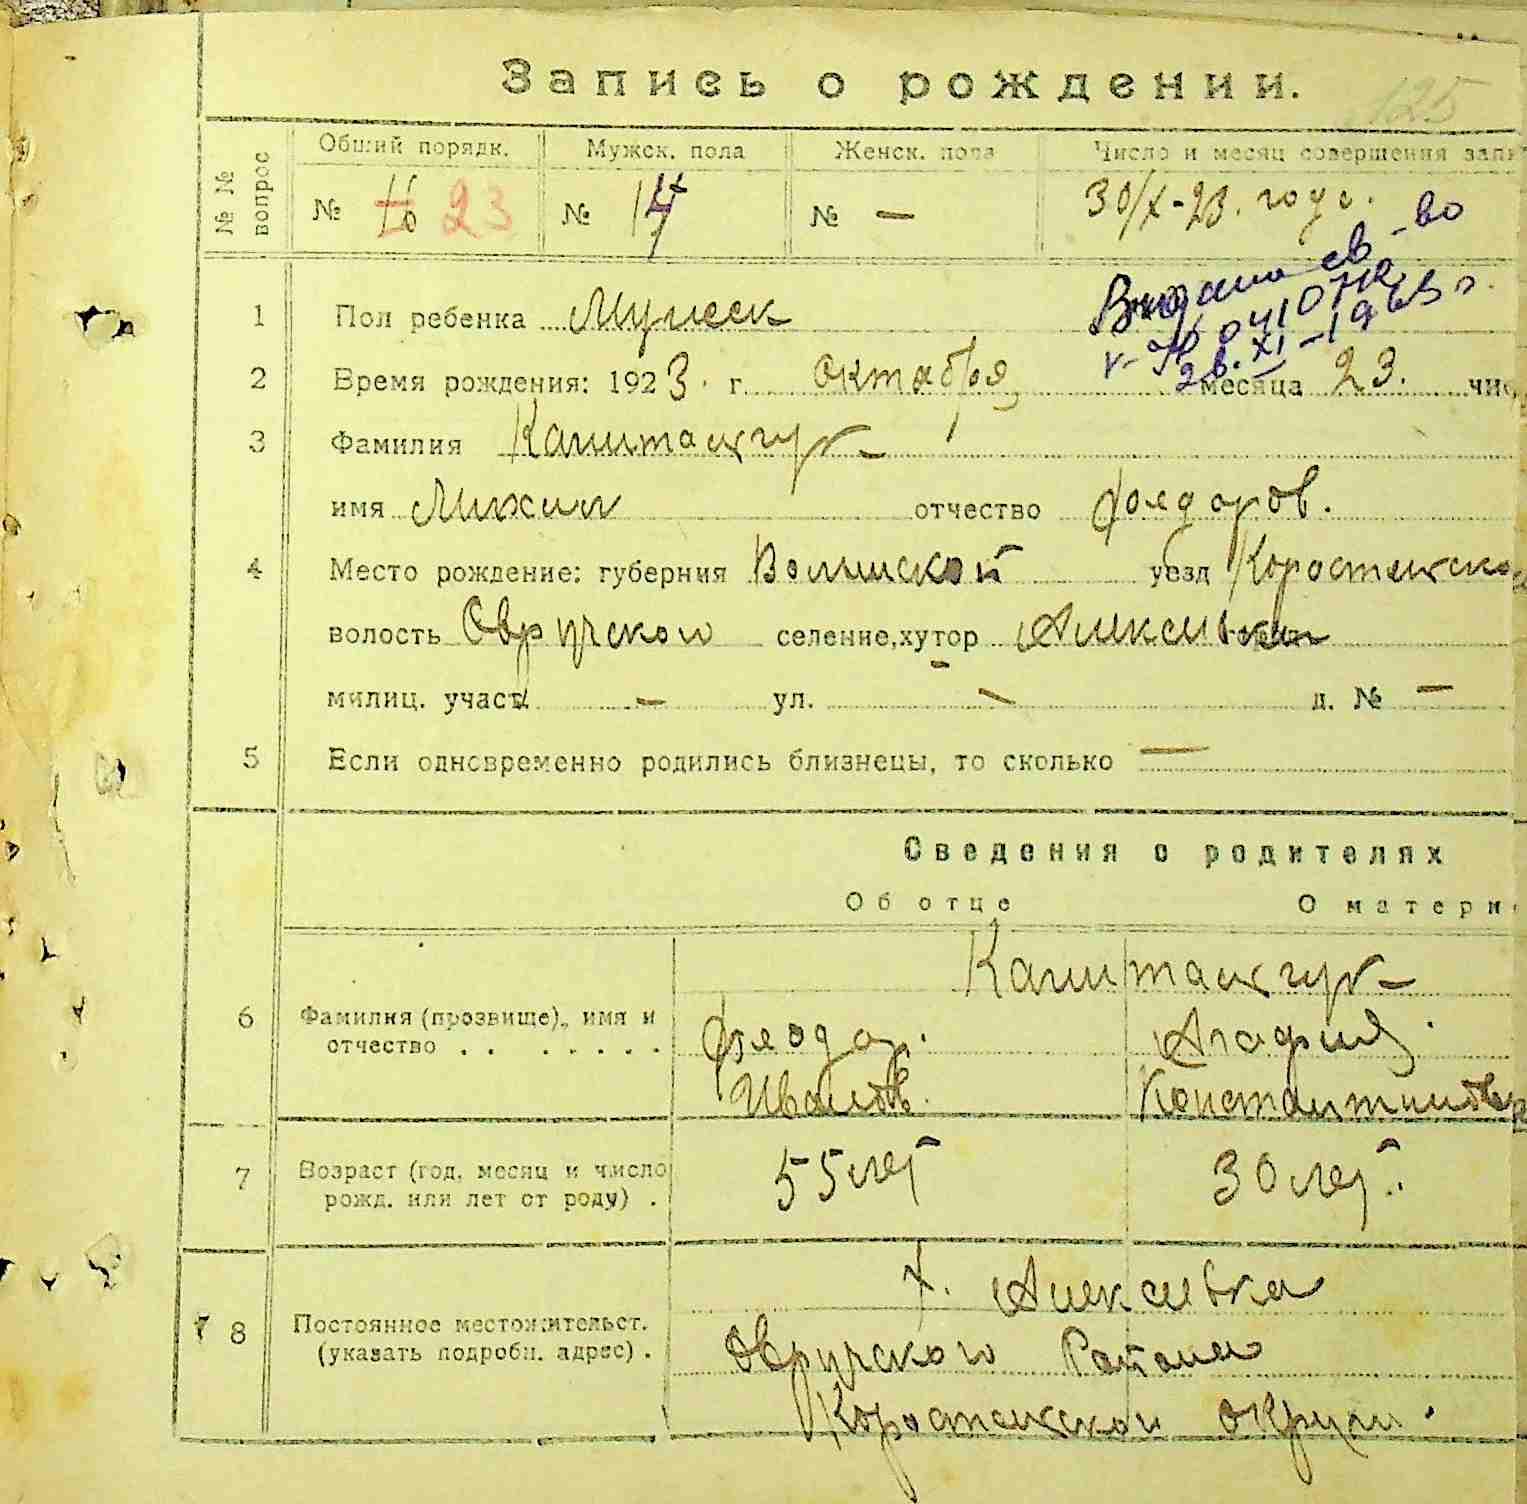 Запись о рождении.
125
№ № вопрос
Общий порядк. Мужск. пола Женск. пола Число и месяц совершения запи
№ 23 № № — 30/X-23. года.
1 Пол ребенка Мужеск
28.XI-1963 г.
2 Время рождения: 1923. г. октября месяца 23. чис
3 Фамилия Капитанчук
имя Михаил отчество Феодоров.
4 Место рождение: губерния Волынской уезд Коростенско
волость Овручского селение, хутор Алексевка
милиц. участ. — ул. — д. № —
5 Если одновременно родились близнецы, то сколько —
Сведения о родителях
Об отце О матери
Капитанчук
6 Фамилия (прозвище), имя и отчество . . . . . . .
Феодор. Агафия.
Иванов. Константинов
7 Возраст (год, месяц и число рожд. или лет от роду) .
55 лет 30 лет.
8 Постоянное местожительст. (указать подробн. адрес) .
х. Алексевка
Овручского Района
Коростенской округи.